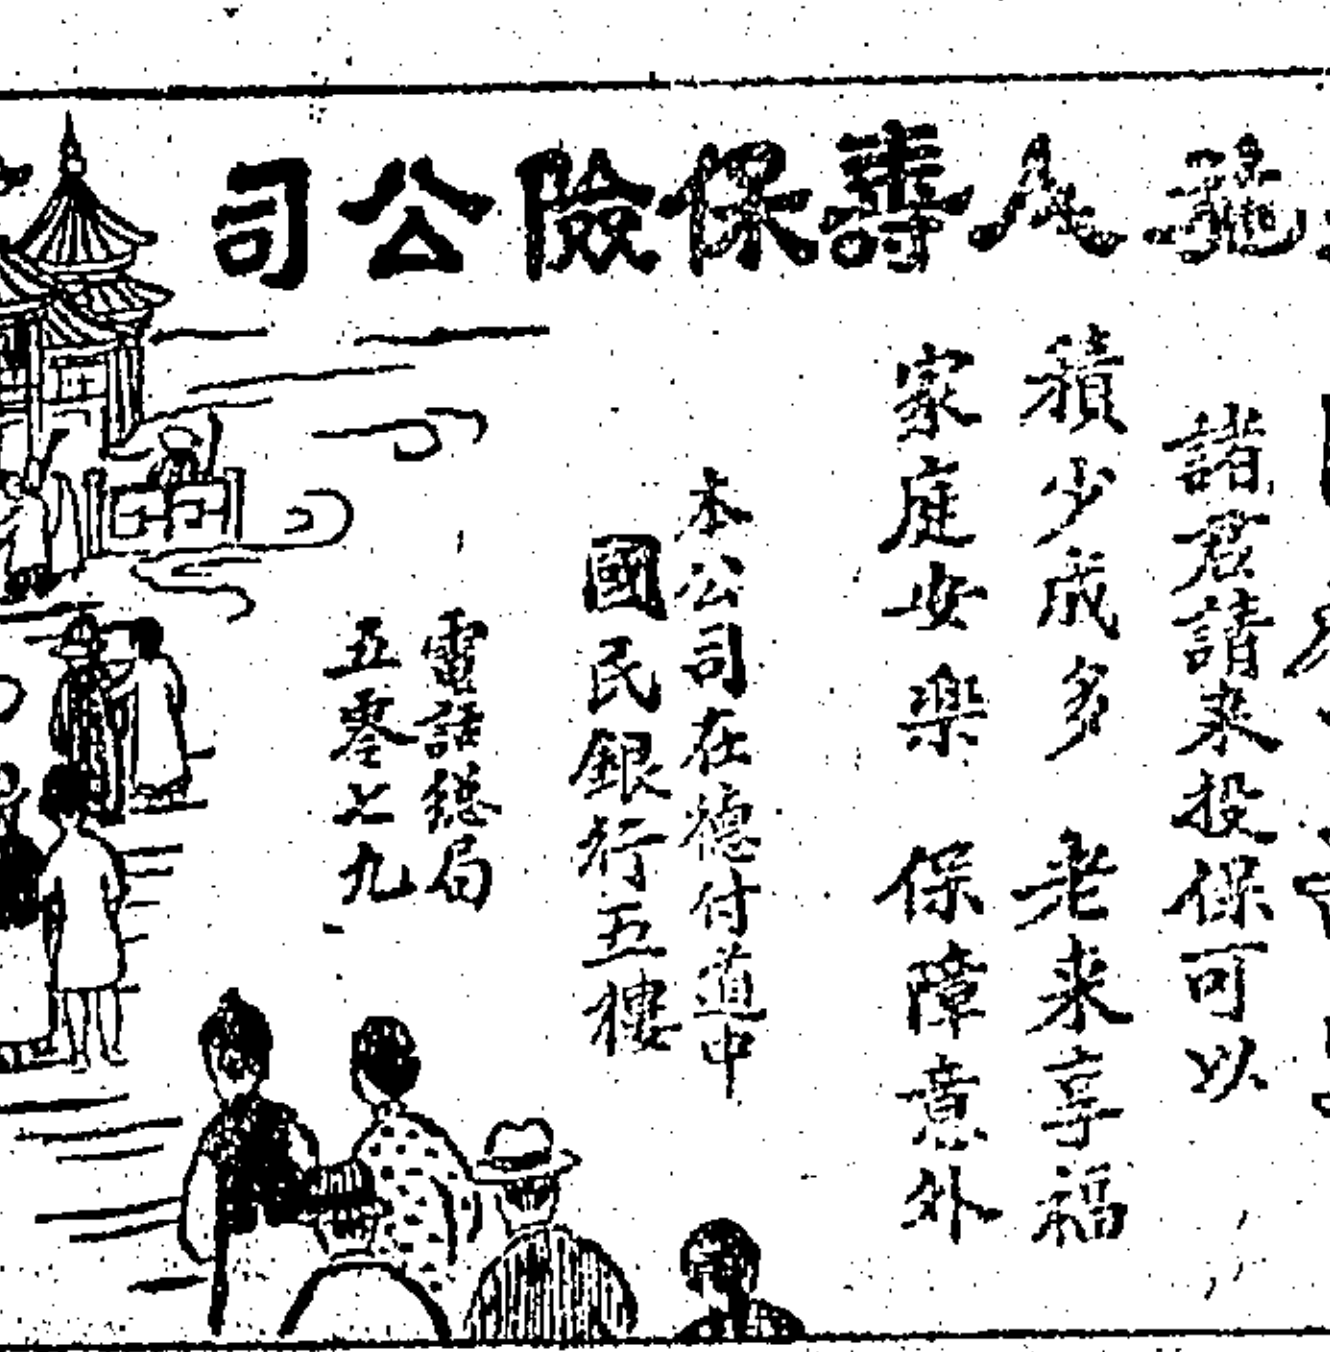 龍人壽保險公司
諸君請来投保可以
積少成多 老来享福
家庭安樂 保障意外
本公司在德付道中
國民銀行五樓
電話總局
五零七九